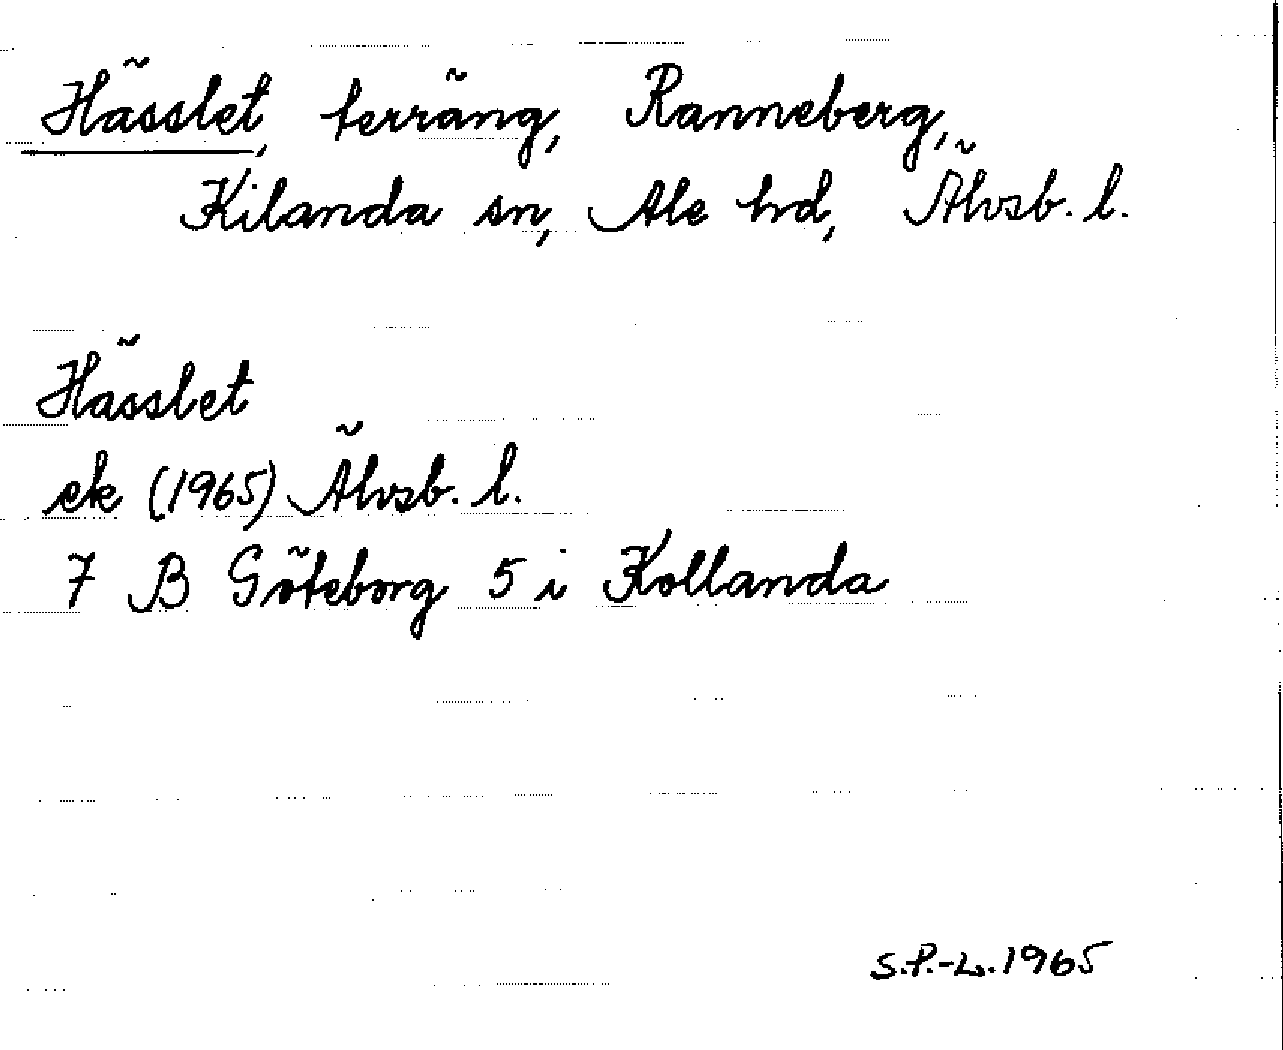 Hässlet, terräng, Ranneberg,
Kilanda sn, Ale hd, Älvsb. l.
Hässlet
ek (1965) Älvsb. l.
7 B Göteborg 5 i Kollanda
S.P.-L. 1965